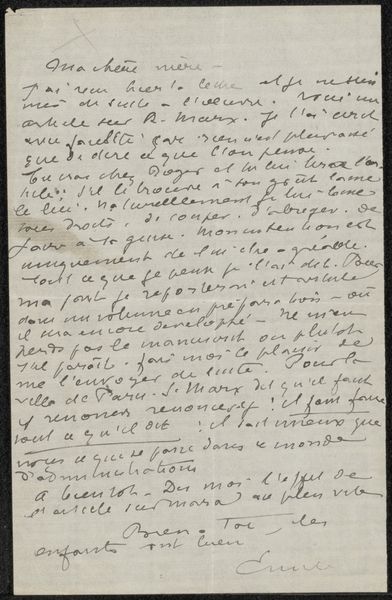 Ma chère mère -
J'ai reçu hier ta lettre et je me suis
mis de suite à l'oeuvre. Voici un
article sur R. Marx. Je l'ai écrit
avec facilité car rien n'est plus aisé
que de dire ce que l'on pense.
Tu iras chez et lui liras l'ar
ticle. S'il le trouve à son goût laisse
le lui. Naturellement je lui laisse
tous droits, de couper, d'abréger, de
faire à sa guise. Mon intention est
uniquement de lui être agréable.
Tout ce que je peux je l'ai dit. Pour
ma part je reposerai cet article
dans un volume en préparation - où
il sera encore développé - Ne me
perds pas le manuscrit ou plutôt
s'il paraît. Fais moi le plaisir de
me l'envoyer de suite. Pour la
ville de Paris. Si Marx dit qu'il faut
y renoncer renoncez! il faut faire
tout ce qu'il dit: il sait mieux que
nous ce qui se passe dans ce monde
d'administrations
A bientôt - Dis moi l'effet de
l'article sur Marx au plus vite
Bien à Toi, les
enfants vont bien